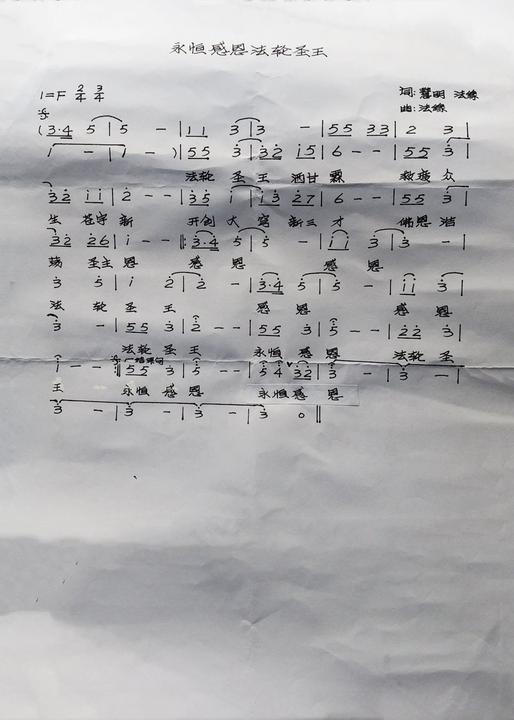 永恒感恩法轮圣王
1=F 2/4 3/4
词: 慧明 法缘
曲: 法缘
(3·4 5 | 5 - | 1 1 3 | 3 - | 5 5 3 3 | 2 3 |
1 - | 1 - ) | 5 5 3 | 3 2 1 5 | 6 - - | 5 5 3 |
法轮 圣 王 洒甘 霖 救度 众
3 2 1 1 | 2 - - | 3 5 1 | 1 3 2 7 | 6 - - | 5 5 3 |
生 苍宇 新 开创 大 穹 新三 才 佛恩 浩
3 2 2 6 | 1 - - |: 3·4 5 | 5 - | 1 1 3 | 3 - |
荡 圣主 恩 感 恩 感 恩
3 5 | 1 2 | 2 - | 3·4 5 | 5 - | 1 1 3 |
法 轮 圣 王 感 恩 感 恩
3 - | 5 5 3 | 2 - - | 5 5 3 | 5 - - | 2 2 3 |
法轮 圣 王 永恒 感 恩 法轮 圣
1 - - :| 5 5 3 | 5 - - | 5 4 3 2 | 3 - - | 3 - |
王 永恒 感 恩 永恒 感 恩
3 - | 3 - | 3 - - | 3 0 ||